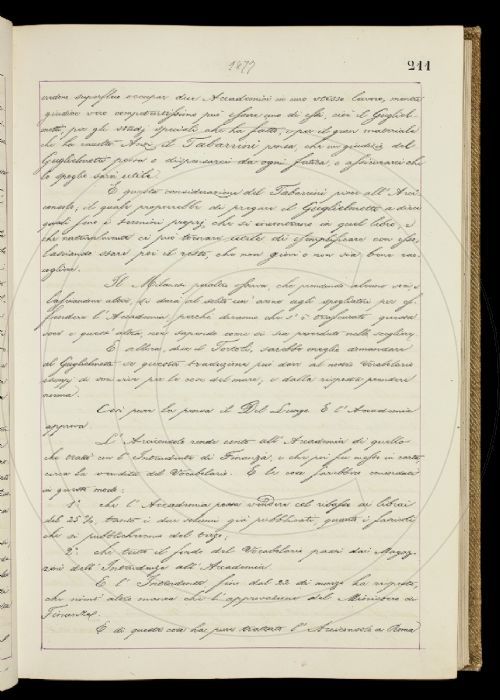 1877
211
credere superfluo occupar due Accademici in uno stesso lavoro, mentre
giudica vero competentissimo può essere uno di essi, cioè il Guglielmotti,
per gli studj speciali che ha fatto, e per il gran materiale
che ha raccolto. Anzi il Tabarrini pensa, che un giudizio del
Guglielmotti possa dispensarci da ogni fatica, e assicurarci che
lo spoglio sarà utile.
E questa considerazione del Tabarrini piace all'Arciconsolo,
il quale proporrebbe di pregare il Guglielmotti a dirci
quali sono i termini proprj che si incontrano in quel libro, e
che naturalmente ci può tornare utile di esemplificare con esso,
lasciando stare per il resto, che non giovi o non sia bene raccoglierne.
Il Milanesi peraltro osserva, che prendendo alcune voci e
lasciandone altre, si darà al solito un'arme agli spogliatori per offendere
l'Accademia, perché diranno che s'è trascurato questa
voce e quest'altra, non sapendo come si sia proceduto nello scegliere.
E allora, dice il Tortoli, sarebbe meglio domandare
al Guglielmotti se questa traduzione può dare al nostro Vocabolario
esempj di voci vive per le cose del mare, e dalla risposta prendere
norma.
Così pure la pensa il Del Lungo. E l'Accademia
approva.
L'Arciconsolo rende conto all'Accademia di quello
che trattò con l'Intendente di Finanza, e che poi fu messo in carta
circa la vendita del Vocabolario. E le cose sarebbero concordate
in questo modo:
1.° che l'Accademia possa vendere col ribasso ai librai
del 25%, tanto i due volumi già pubblicati, quanto i fascicoli
che si pubblicheranno del terzo;
2.° che tutto il fondo del Vocabolario passi dai Magazzini
dell'Intendenza all'Accademia.
E l'Intendente fino dal 22 di marzo ha risposto,
che niun'altro manca che l'approvazione del Ministero di
Finanze.
E di queste cose ha pure trattato l'Arciconsolo a Roma